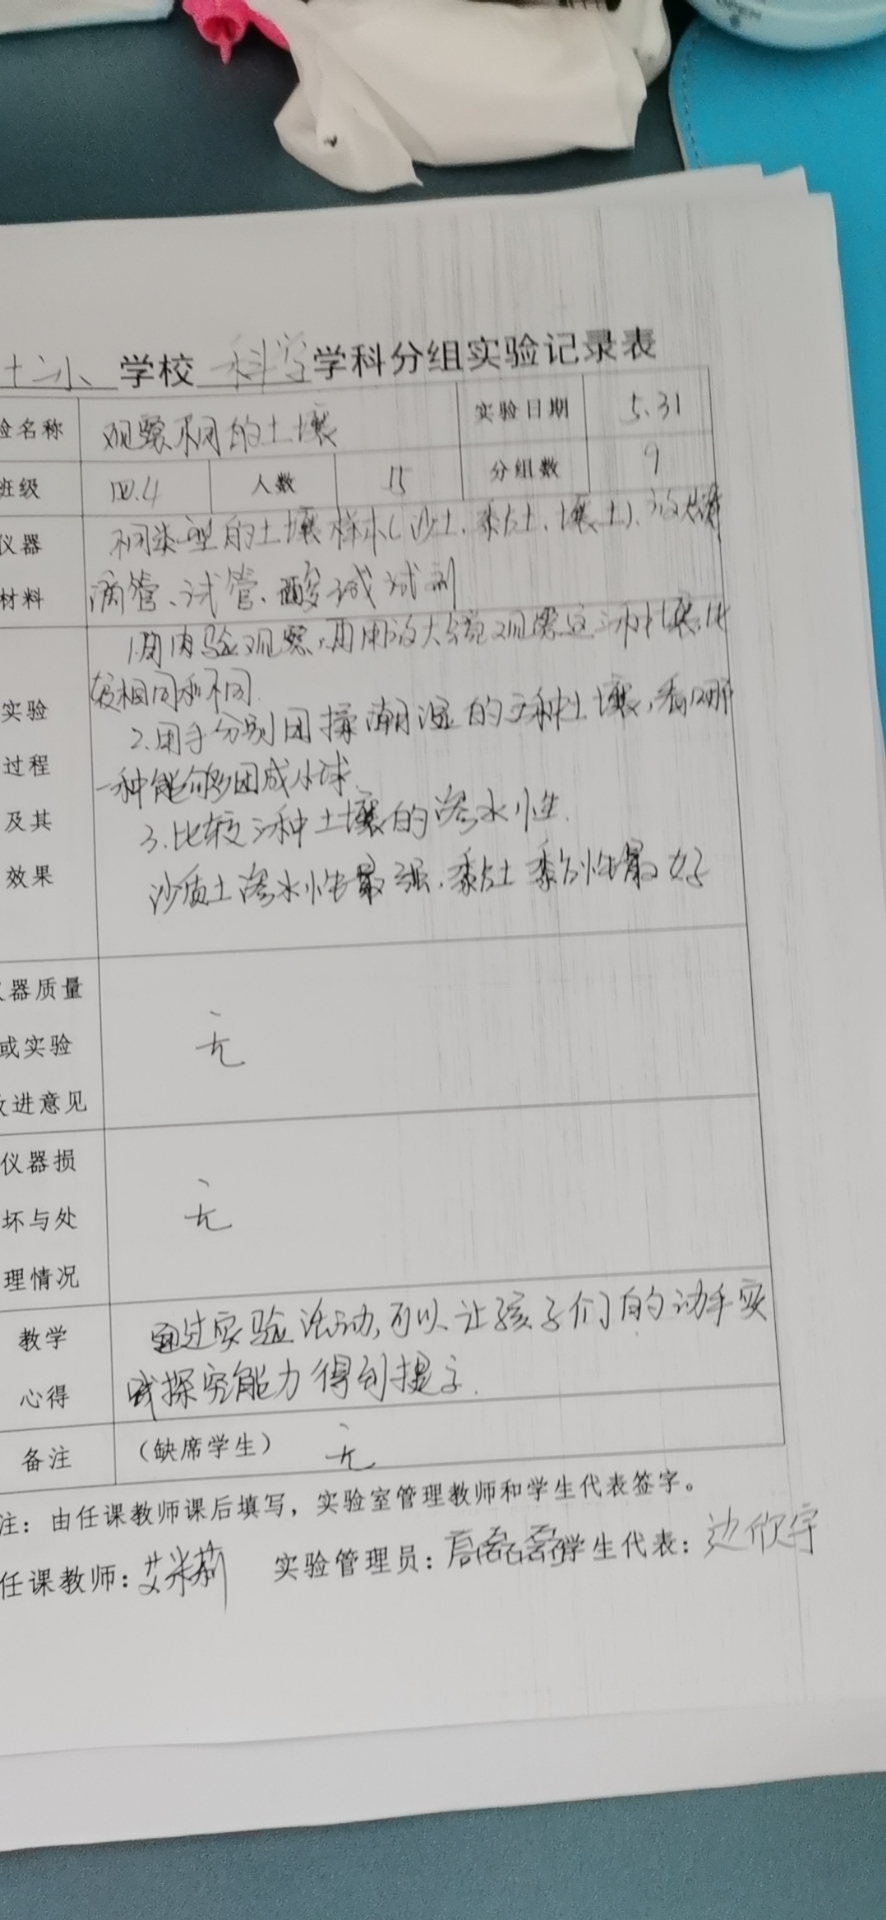 OPEN
十六小 学校 科学 学科分组实验记录表
验名称 观察不同的土壤 实验日期 5.31
班级 四.4 人数 55 分组数 9
仪器 不同类型的土壤样本(沙土、黏土、壤土)、放大镜
材料 滴管、试管、酸碱试剂
1.用肉眼观察,再用放大镜观察这三种土壤,比
较相同和不同.
实验 2.用手分别团揉潮湿的三种土壤,看哪
过程 一种能够团成小球.
及其 3.比较三种土壤的渗水性.
效果 沙质土渗水性最强,黏土黏性最好
仪器质量
或实验 无
改进意见
仪器损
坏与处 无
理情况
教学 通过实验活动,可以让孩子们的动手实
心得 践探究能力得到提示.
备注 (缺席学生) 无
注:由任课教师课后填写,实验室管理教师和学生代表签字。
任课教师:艾米莉 实验管理员:高 学生代表:边欣宇